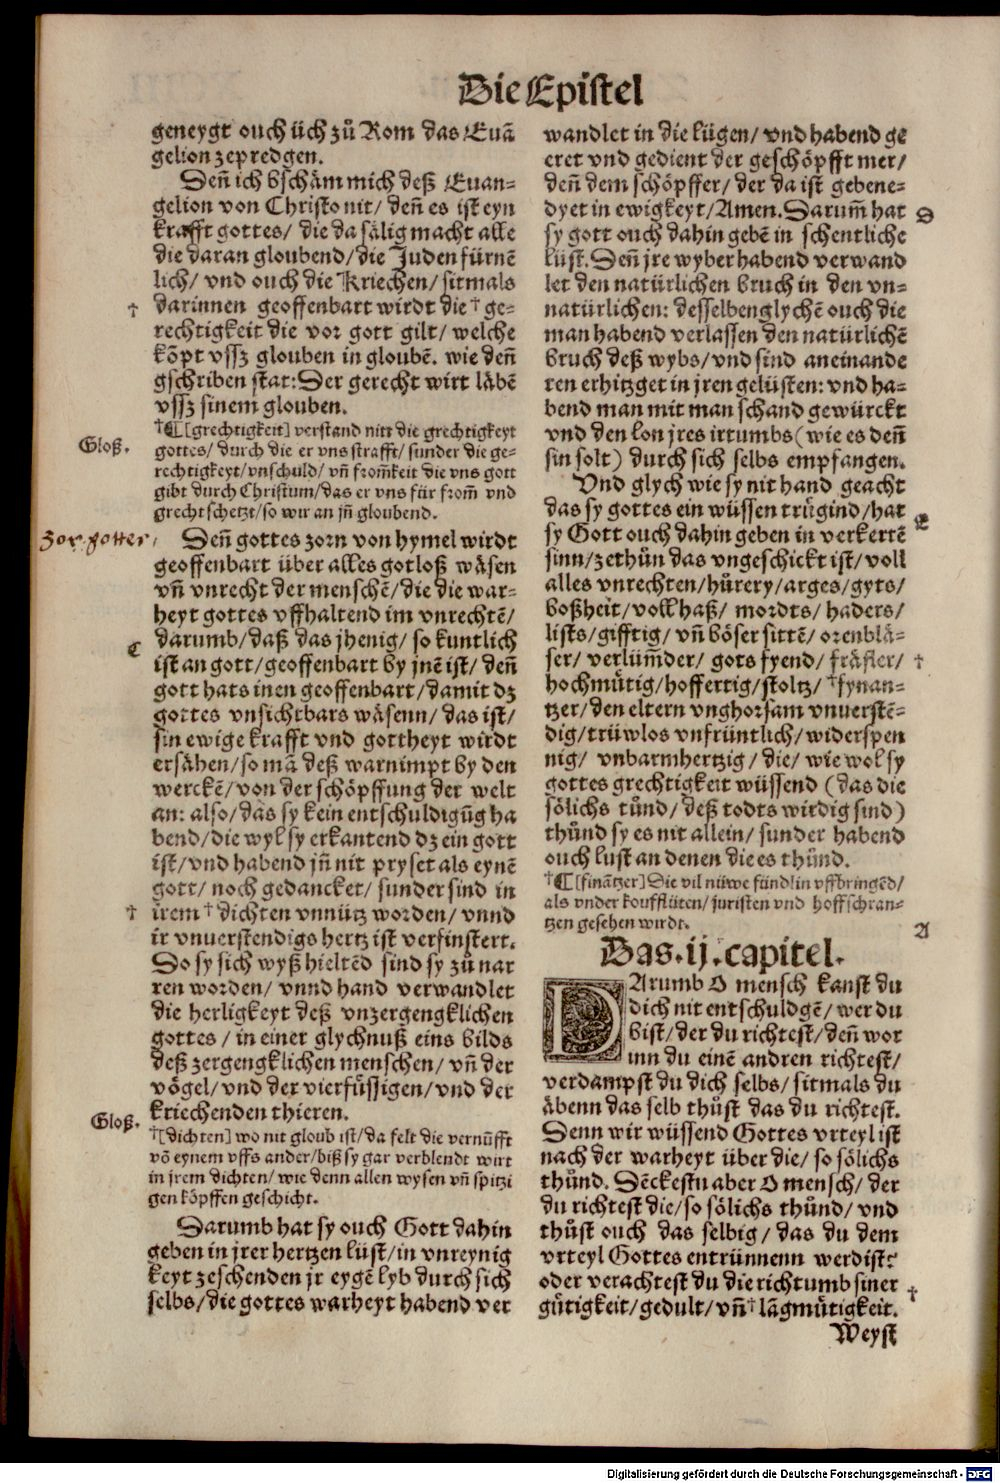 Die Epistel
geneygt ouch üch zů Rom das Euã
gelion zepredgen.
Deñ ich bschäm mich deß Euan-
gelion von Christo nit/ deñ es ist eyn
krafft gottes/ die da sälig macht alle
die daran gloubend/die Juden fürnē
lich/ vnd ouch die Kriechen/ sitmals
† darinnen geoffenbart wirdt die † ge-
rechtigkeit die vor gott gilt/ welche
kõpt vssz glouben in gloubē. wie deñ
gschriben stat: Der gerecht wirt läbē
vssz sinem glouben.
Gloß.
†¶[grechtigkeit] verstand nitt die grechtigkeyt
gottes/ durch die er vns strafft/ sunder die ge-
rechtigkeyt/vnschuld/ vñ from̃keit die vns gott
gibt durch Christum/das er vns für from̃ vnd
grecht schetzt/so wir an jñ gloubend.
zorn gottes,
Deñ gottes zorn von hymel wirdt
geoffenbart über alles gotloß wäsen
vñ vnrecht der menschē/die die war-
heyt gottes vffhaltend im vnrechtē/
C darumb/daß das jhenig/ so kuntlich
ist an gott/geoffenbart by jnē ist/ deñ
gott hats inen geoffenbart/damit dz
gottes vnsichtbars wäsenn/ das ist/
sin ewige krafft vnd gottheyt wirdt
ersähen/so mã deß warnimpt by den
werckē/von der schöpffung der welt
an: also/das sy kein entschuldigũg ha
bend/die wyl sy erkantend dz ein gott
ist/vnd habend jñ nit pryset als eynē
gott/ noch gedancket/ sunder sind in
† irem † dichten vnnütz worden/ vnnd
ir vnuerstendigs hertz ist verfinstert.
Do sy sich wyß hieltēd sind sy zů nar
ren worden/ vnnd hand verwandlet
die herligkeyt deß vnzergengklichen
gottes / in einer glychnuß eins bilds
deß zergengklichen menschen/ vñ der
vögel/vnd der vierfüssigen/vnd der
kriechenden thieren.
Gloß.
†[dichten] wo nit gloub ist/da felt die vernũfft
võ eynem vffs ander/biß sy gar verblendt wirt
in jrem dichten/ wie denn allen wysen vñ spitzi
gen köpffen geschicht.
Darumb hat sy ouch Gott dahin
geben in jrer hertzen lüst/in vnreynig
keyt zeschenden jr eygē lyb durch sich
selbs/die gottes warheyt habend ver
wandlet in die lügen/ vnd habend ge
eret vnd gedient der geschöpfft mer/
deñ dem schöpffer/ der da ist gebene-
dyet in ewigkeyt/Amen. Darum̃ hat D
sy gott ouch dahin gebē in schentliche
lüst. Deñ jre wyber habend verwand
let den natürlichen bruch in den vn-
natürlichen: desselben glychē ouch die
man habend verlassen den natürlichē
bruch deß wybs/vnd sind aneinande
ren erhitzget in jren gelüsten: vnd ha-
bend man mit man schand gewürckt
vnd den lon jres irtumbs (wie es deñ
sin solt) durch sich selbs empfangen.
Vnd glych wie sy nit hand geacht
das sy gottes ein wüssen trügind/hat E
sy Gott ouch dahin geben in verkertē
sinn/zethůn das vngeschickt ist/ voll
alles vnrechten/hůrery/arges/gyts/
boßheit/voll haß/ mordts/ haders/
lists/gifftig/ vñ böser sittē/ orenblä-
ser/ verlüm̃der/ gots fyend/ fräfler/ †
hochmütig/hoffertig/stoltz/ †fynan-
tzer/den eltern vnghorsam vnuerstē-
dig/trüwlos vnfrüntlich/widerspen
nig/ vnbarmhertzig/ die/ wie wol sy
gottes grechtigkeit wüssend (das die
sölichs tůnd/ deß todts wirdig sind)
thůnd sy es nit allein/ sunder habend
ouch lust an denen die es thůnd.
†¶[finãtzer] Die vil nüwe fündlin vffbringēd/
als vnder koufflüten/ juristen vnd hoffschran-
tzen gesehen wirdt.
Das .ij. capitel.
A
DArumb O mensch kanst du
dich nit entschuldgē/ wer du
bist/ der du richtest/ deñ wor
inn du einē andren richtest/
verdampst du dich selbs/ sitmals du
äbenn das selb thůst das du richtest.
Denn wir wüssend Gottes vrteyl ist
nach der warheyt über die/ so sölichs
thůnd. Dēckestu aber O mensch/ der
du richtest die/so sölichs thůnd/ vnd
thůst ouch das selbig/ das du dem
vrteyl Gottes entrünnenn werdist:
oder verachtest du die richtumb siner
gütigkeit/gedult/ vñ † lãgmütigkeit. †
Weyst
Digitalisierung gefördert durch die Deutsche Forschungsgemeinschaft - DFG